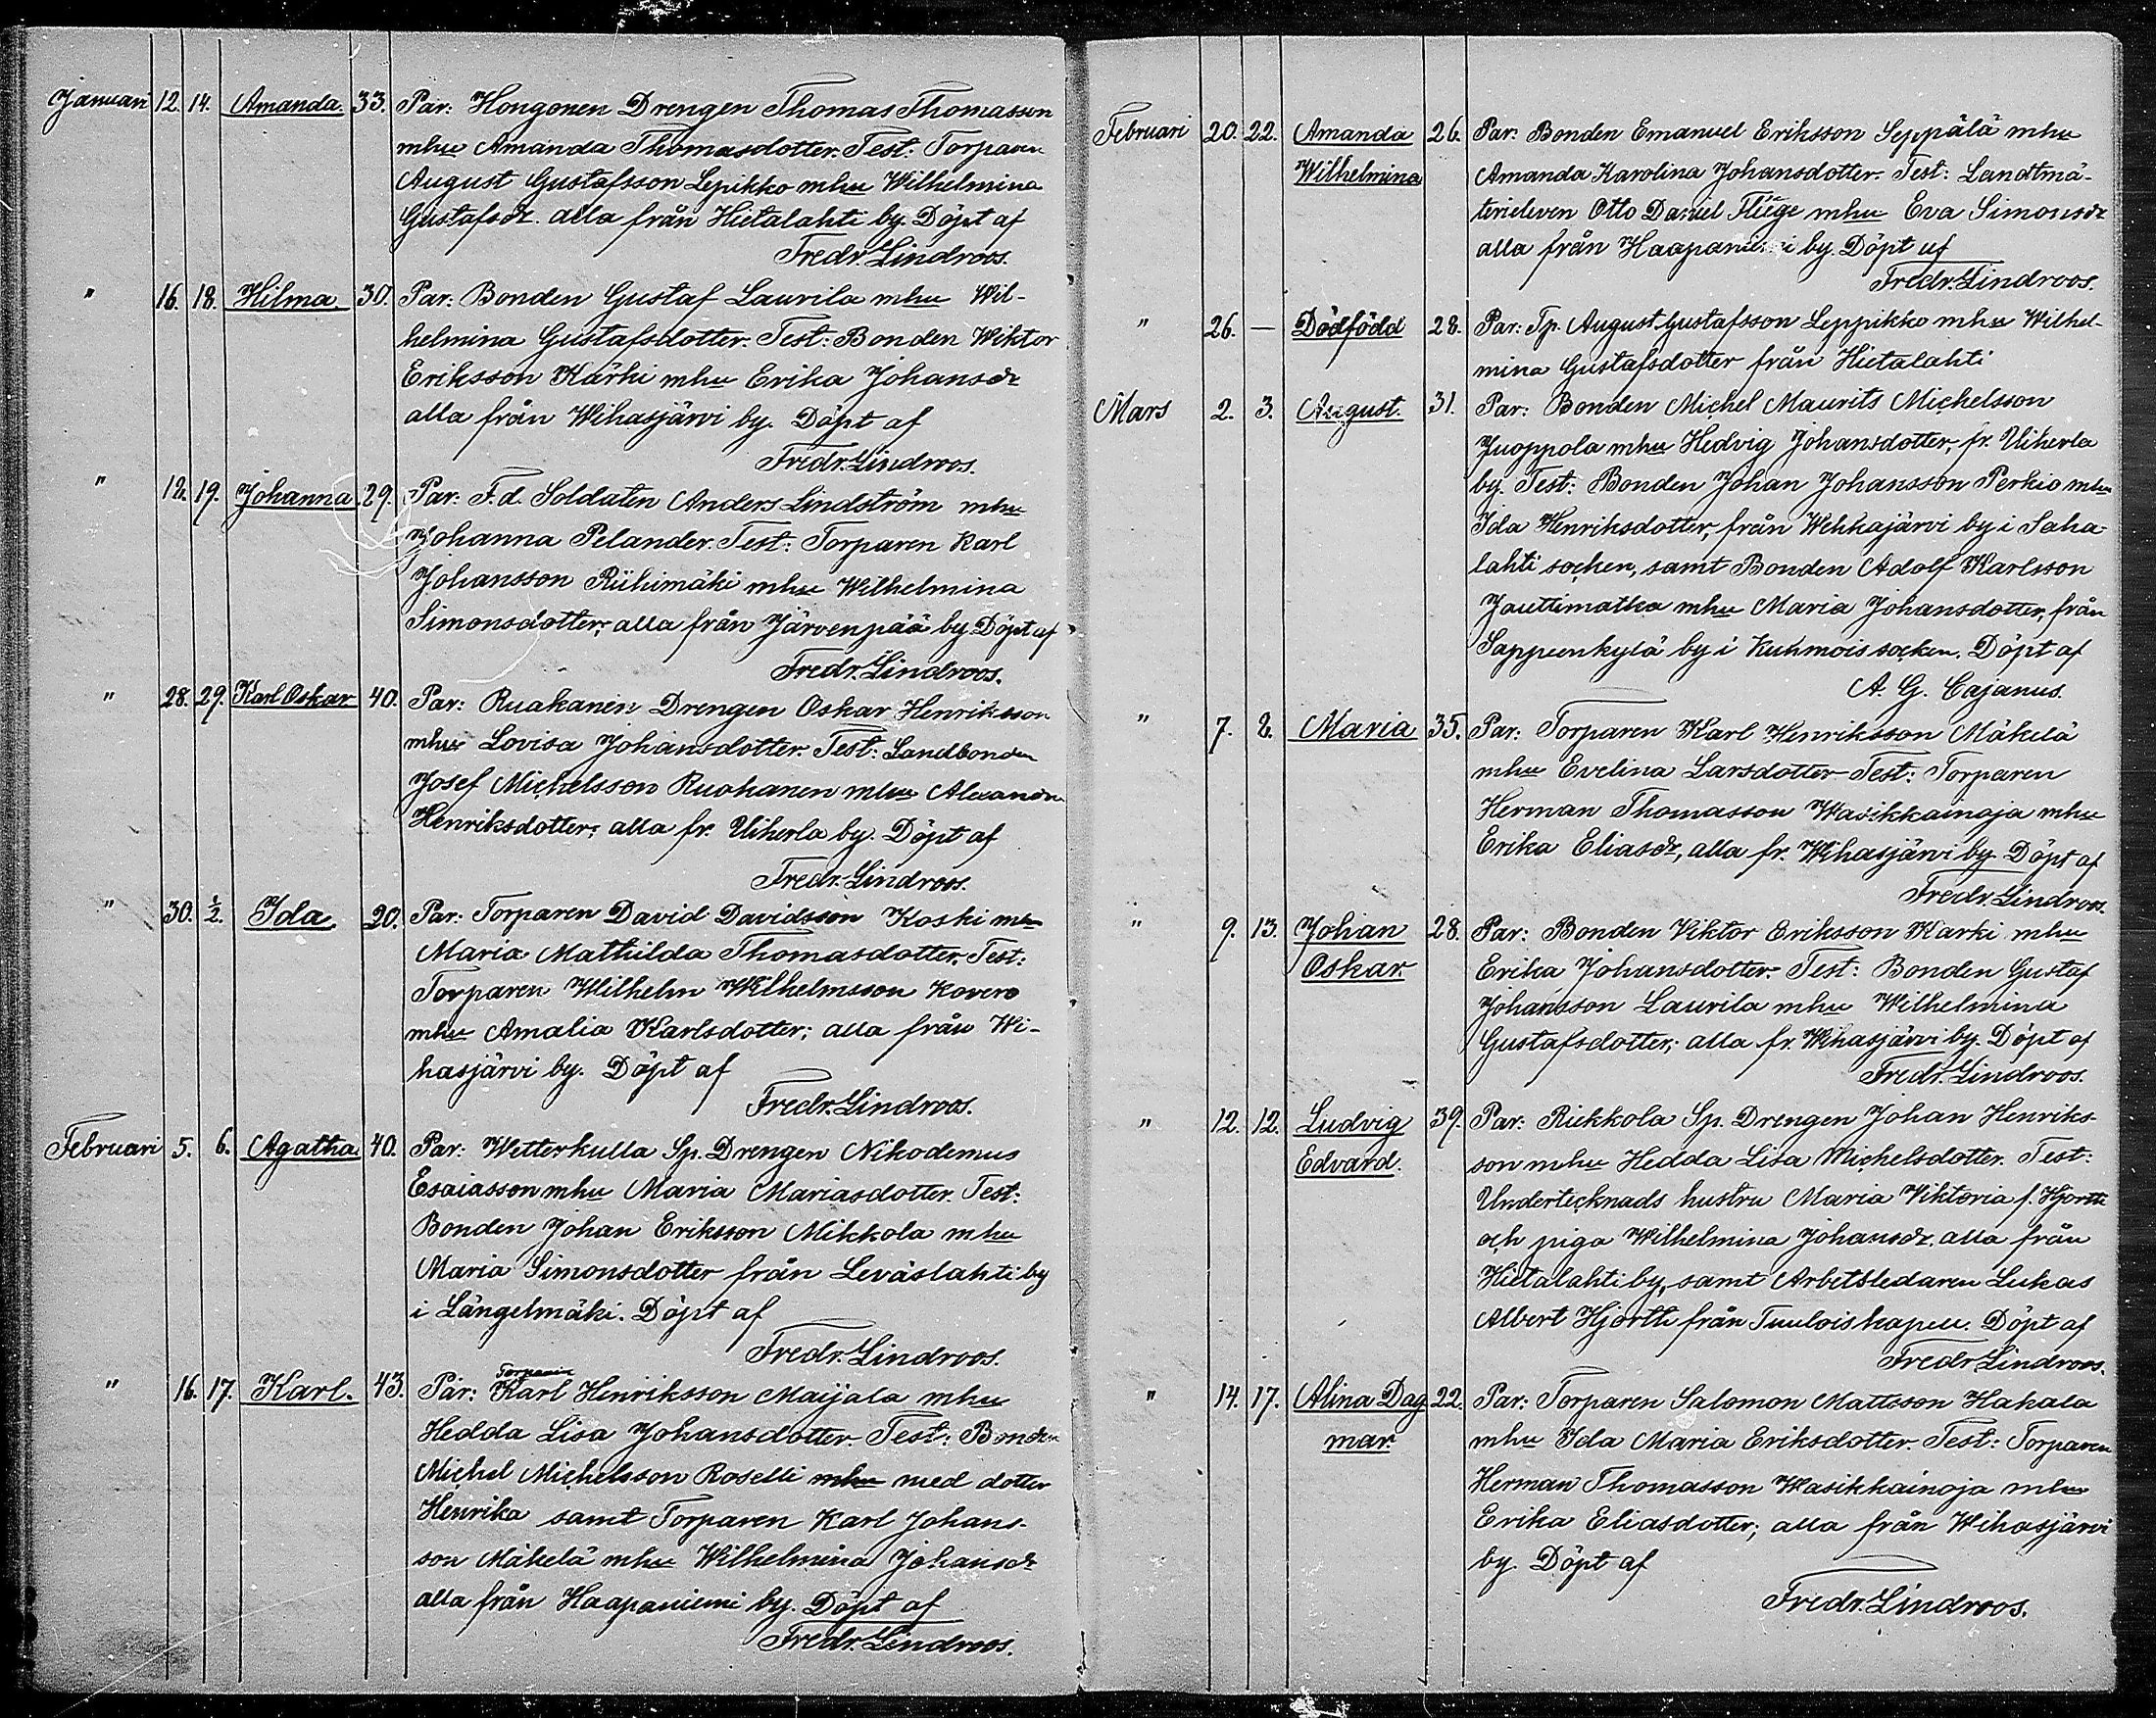 Januari 12. 14. Amanda. 33. Par: Hongonen Drengen Thomas Thomasson
mhu Amanda Thomasdotter. Test: Torparen
August Gustafsson Lepikko mhu Wilhelmina
Gustafsdr. alla från Hietalahti by. Döpt af
Fredr. Lindroos.
" 16. 18. Hilma. 30. Par: Bonden Gustaf Laurila mhu Wil-
helmina Gustafsdotter. Test: Bonden Wiktor
Eriksson Kärki mhu Erika Johansdr
alla från Wihasjärvi by. Döpt af
Fredr. Lindroos.
" 18. 19. Johanna 29. Par: F.d. Soldaten Anders Lindström mhu
Johanna Pelander. Test: Torparen Karl
Johansson Riihimäki mhu Wilhelmina
Simonsdotter; alla från Järvenpää by Döpt af
Fredr. Lindroos.
" 28. 29. Karl Oskar 40. Par: Ruakanen Drengen Oskar Henriksson
mhu Lovisa Johansdotter. Test: Landbonden
Josef Michelsson Ruohanen mhu Alexandra
Henriksdotter; alla fr. Uiherla by. Döpt af
Fredr. Lindroos.
" 30. 1/2. Ida. 20. Par: Torparen David Davidsson Koski mhu
Maria Mathilda Thomasdotter. Test:
Torparen Wilhelm Wilhelmsson Kovero
mhu Amalia Karlsdotter; alla från Wi-
hasjärvi by. Döpt af
Fredr. Lindroos.
Februari 5. 6. Agatha. 40. Par: Wetterkulla Sp. Drengen Nikodemus
Esaiasson mhu Maria Mariasdotter. Test:
Bonden Johan Eriksson Mikkola mhu
Maria Simonsdotter från Leväslahti by
i Längelmäki. Döpt af
Fredr. Lindroos.
Torparen
" 16. 17. Karl. 43. Par: Karl Henriksson Maijala mhu
Hedda Lisa Johansdotter. Test: Bonden
Michel Michelsson Roselli mhu med dotter
Henrika samt Torparen Karl Johans-
son Mäkelä mhu Wilhelmina Johansdr
alla från Haapaniemi by. Döpt af
Fredr. Lindroos.
Februari 20. 22. Amanda 26. Par: Bonden Emanuel Eriksson Seppälä mhu
Wilhelmina Amanda Karolina Johansdotter. Test: Landtmä-
terieleven Otto Daniel Flüge mhu Eva Simonsdr
alla från Haapaniemi by. Döpt af
Fredr. Lindroos.
" 26. — Dödfödd 28. Par: Tp. August Gustafsson Leppikko mhu Wilhel-
mina Gustafsdotter från Hietalahti
Mars 2. 3. August. 31. Par: Bonden Michel Maurits Michelsson
Juoppola mhu Hedvig Johansdotter, fr. Uiherla
by. Test: Bonden Johan Johansson Perkio mhu
Ida Henriksdotter, från Wehkajärvi by i Saha-
lahti socken, samt Bonden Adolf Karlsson
Jauttimatka mhu Maria Johansdotter, från
Sappeenkylä by i Kuhmois socken. Döpt af
A. G. Cajanus.
" 7. 8. Maria 35. Par: Torparen Karl Henriksson Mäkelä
mhu Evelina Larsdotter Test: Torparen
Herman Thomasson Wasikkainoja mhu
Erika Eliasdr, alla fr. Wihasjärvi by Döpt af
Fredr. Lindroos.
" 9. 13. Johan 28. Par: Bonden Viktor Eriksson Karki mhu
Oskar. Erika Johansdotter. Test: Bonden Gustaf
Johansson Laurila mhu Wilhelmina
Gustafsdotter; alla fr. Wihasjärvi by. Döpt af
Fredr. Lindroos.
" 12. 12. Ludvig 39. Par: Riekkola Sp. Drengen Johan Henriks-
Edvard. son mhu Hedda Lisa Michelsdotter. Test:
Undertecknads hustru Maria Viktoria f. Hjortti
och piga Wilhelmina Johansdr. alla från
Hietalahti by, samt Arbetsledaren Lukas
Albert Hjortti från Tuulois kapell. Döpt af
Fredr. Lindroos.
" 14. 17. Alina Dag 22. Par: Torparen Salomon Mattsson Hakala
mar. mhu Ida Maria Eriksdotter. Test: Torparen
Herman Thomasson Wasikkainoja mhu
Erika Eliasdotter; alla från Wihasjärvi
by Döpt af
Fredr. Lindroos.